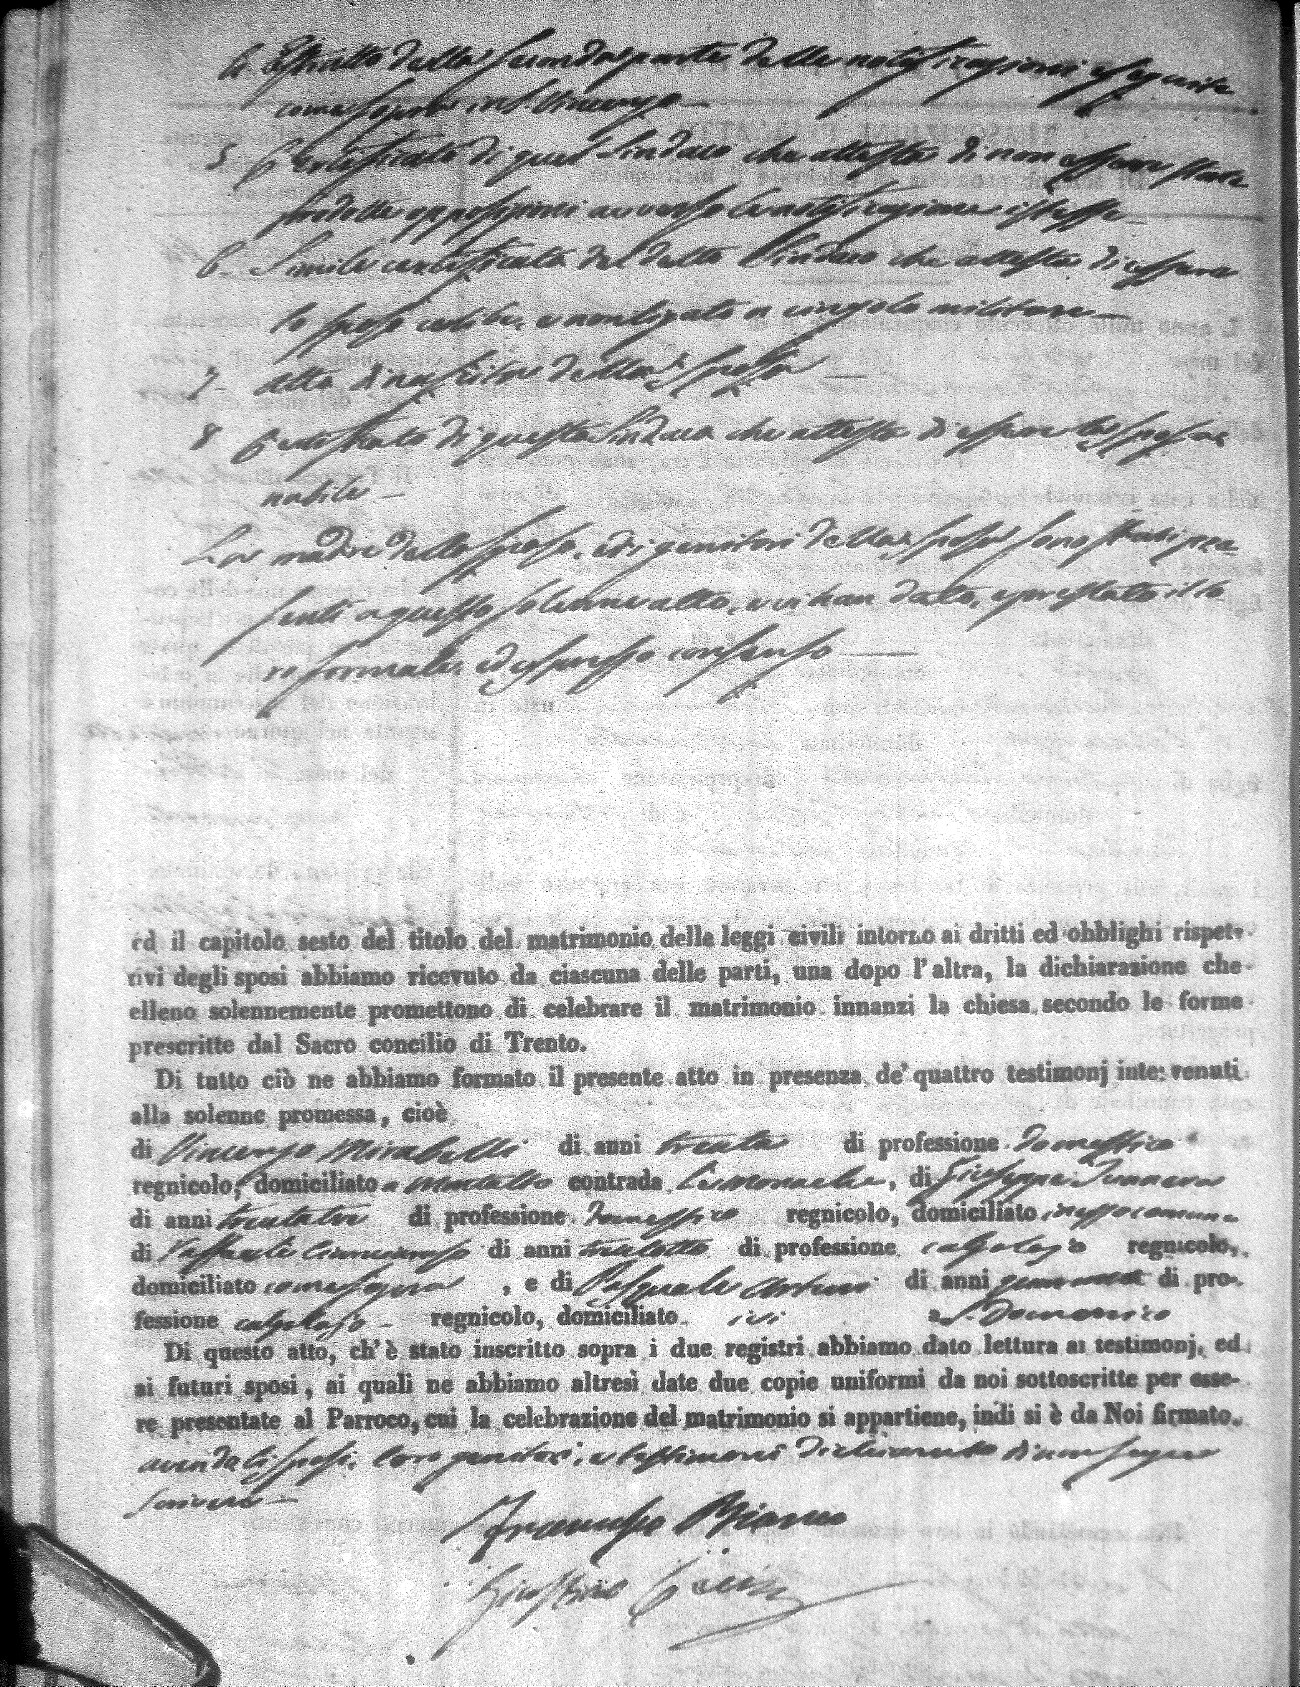 4. Estratto della seconda parte delle notificazioni eseguite
come sopra in S. Vincenzo
5 Certificato di quel Sindaco che attesta di non essere state
prodotte opposizioni avverso le notificazione istesse
6. Simile certificato del detto Sindaco che attesta di essere
lo sposo celibe, e non ligato a cingolo militare
7 atto di nascita della sposa
8 Certificato di questo Sindaco che attesta di essere la sposa
nubile
La madre dello sposo, ed i genitori della sposa sono stati pre
senti a questo solenne atto, e vi han dato, e prestato il lo
ro formale, ed espresso consenso
ed il capitolo sesto del titolo del matrimonio delle leggi civili intorno ai dritti ed obblighi rispet-
tivi degli sposi abbiamo ricevuto da ciascuna delle parti, una dopo l'altra, la dichiarazione che
elleno solennemente promettono di celebrare il matrimonio innanzi la chiesa secondo le forme
prescritte dal Sacro concilio di Trento.
Di tutto ciò ne abbiamo formato il presente atto in presenza de' quattro testimonj intervenuti
alla solenne promessa, cioè
di Vincenzo Mirabelli di anni trenta di professione domestico
regnicolo, domiciliato a Montalto contrada le Monache, di Giuseppe
di anni trentatre di professione domestico regnicolo, domiciliato in esso comune
di Raffaele di anni di professione calzolajo regnicolo,
domiciliato come sopra, e di Pasquale di anni di pro-
fessione calzolajo regnicolo, domiciliato ivi a S. Domenico
Di questo atto, ch'è stato inscritto sopra i due registri abbiamo dato lettura ai testimonj, ed
ai futuri sposi, ai quali ne abbiamo altresì date due copie uniformi da noi sottoscritte per esse-
re presentate al Parroco, cui la celebrazione del matrimonio si appartiene, indi si è da Noi firmato.
avendo li sposi, loro genitori, e testimoni dichiarato di non sapere
scrivere
Francesco Bianco